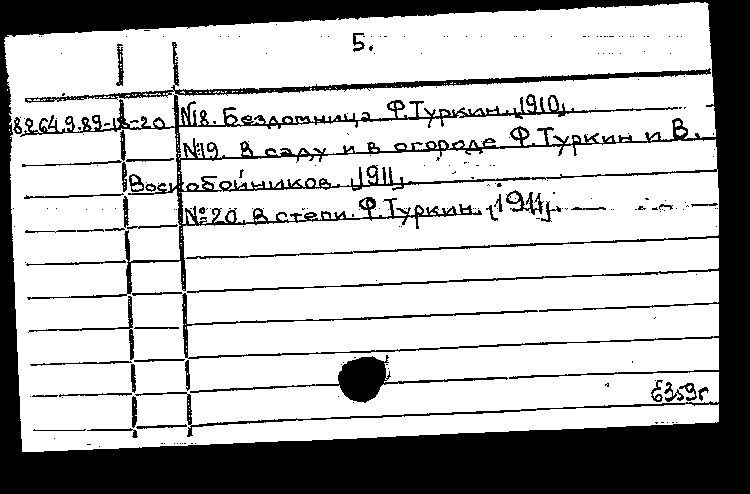 5.
8.264.9.89-18-20 №18. Бездомница Ф.Туркин. [1910].
№19. В саду и в огороде Ф.Туркин и В.
Воскобойников. [1911].
№20. В степи. Ф.Туркин. [1911].
Е359г.